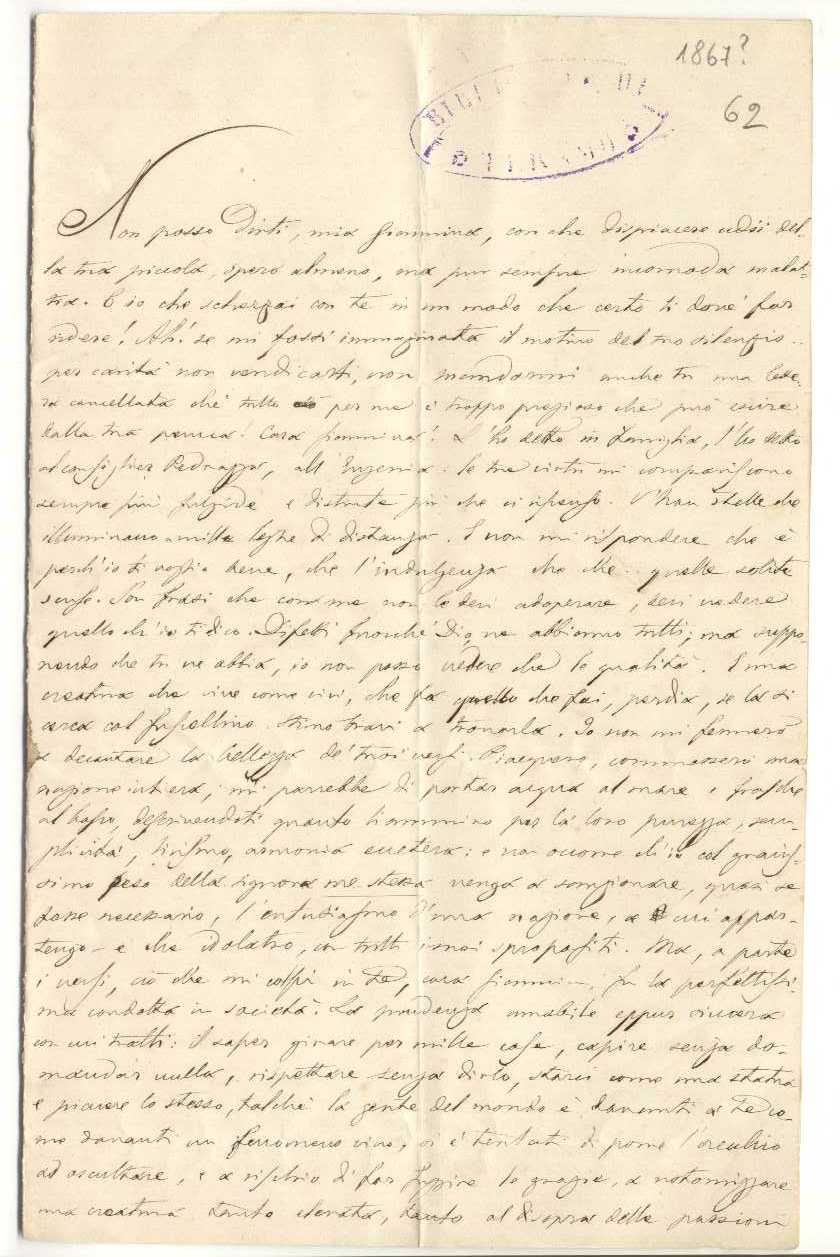 1867?
62
Non posso Dirti, mia Giannina, con che dispiacere udii del-
la tua piccola, spero almeno, ma pur sempre incomoda malat-
tia. E io che scherzai con te in un modo che certo ti dové far
ridere! Ah! se mi fossi immaginata il motivo del tuo silenzio..
per carità non vendicarti, non mandarmi anche tu una lette-
ra cancellata ché tutto per me è troppo prezioso che può escire
dalla tua penna! Cara Giannina! L'ho detto in famiglia, l'ho detto
al consiglier Pedrazza, all'Eugenia: le tue virtù mi compariscono
sempre più fulgide e distinte più che ci ripenso. Son stelle che
illuminano a mille leghe di distanza. E non mi rispondere che è
perch'io ti voglio bene, che l'indulgenza che che.. quelle solite
scuse. Son frasi che con me non le devi adoperare, devi credere
quello ch'io ti dico. Difetti fuorché Dio, ne abbiamo tutti; ma suppo-
nendo che tu ne abbia, io non posso vedere che le qualità. E una
creatura che vive come vivi, che fa quello che fai, perdia, se la si
cerca col fuscellino si ha a trovarla. Io non mi fermerò
a decantare la bellezza de' tuoi versi. Piacquero, commossero una
nazione intiera, mi parrebbe di portar acqua al mare e frasche
al bosco, descrivendoti quanto li ammiro per la loro purezza, sem-
plicità, lirismo, armonia eccetera: e non occorre ch'io col gravis-
simo peso della signora me stessa venga a soggiungere, quasi se
fosse necessario, l'entusiasmo d'una nazione, a cui appar-
tengo e che idolatro, con tutti i suoi spropositi. Ma, a parte
i versi, ciò che mi colpì in te, cara Giannina, fu la perfettissi-
ma condotta in società. La prudenza amabile eppur sincera
con cui tratti: il saper girare per mille case, capire senza do-
mandar nulla, rispettare senza dirlo, starci come una statua
e piacere lo stesso, talché la gente del mondo è davanti a te co-
me davanti un fenomeno vivo, si è tentati di porre l'orecchio
ad ascoltare, e a rischio di far fuggire le grazie, a notomizzare
una creatura tanto elevata, tanto al disopra delle passioni